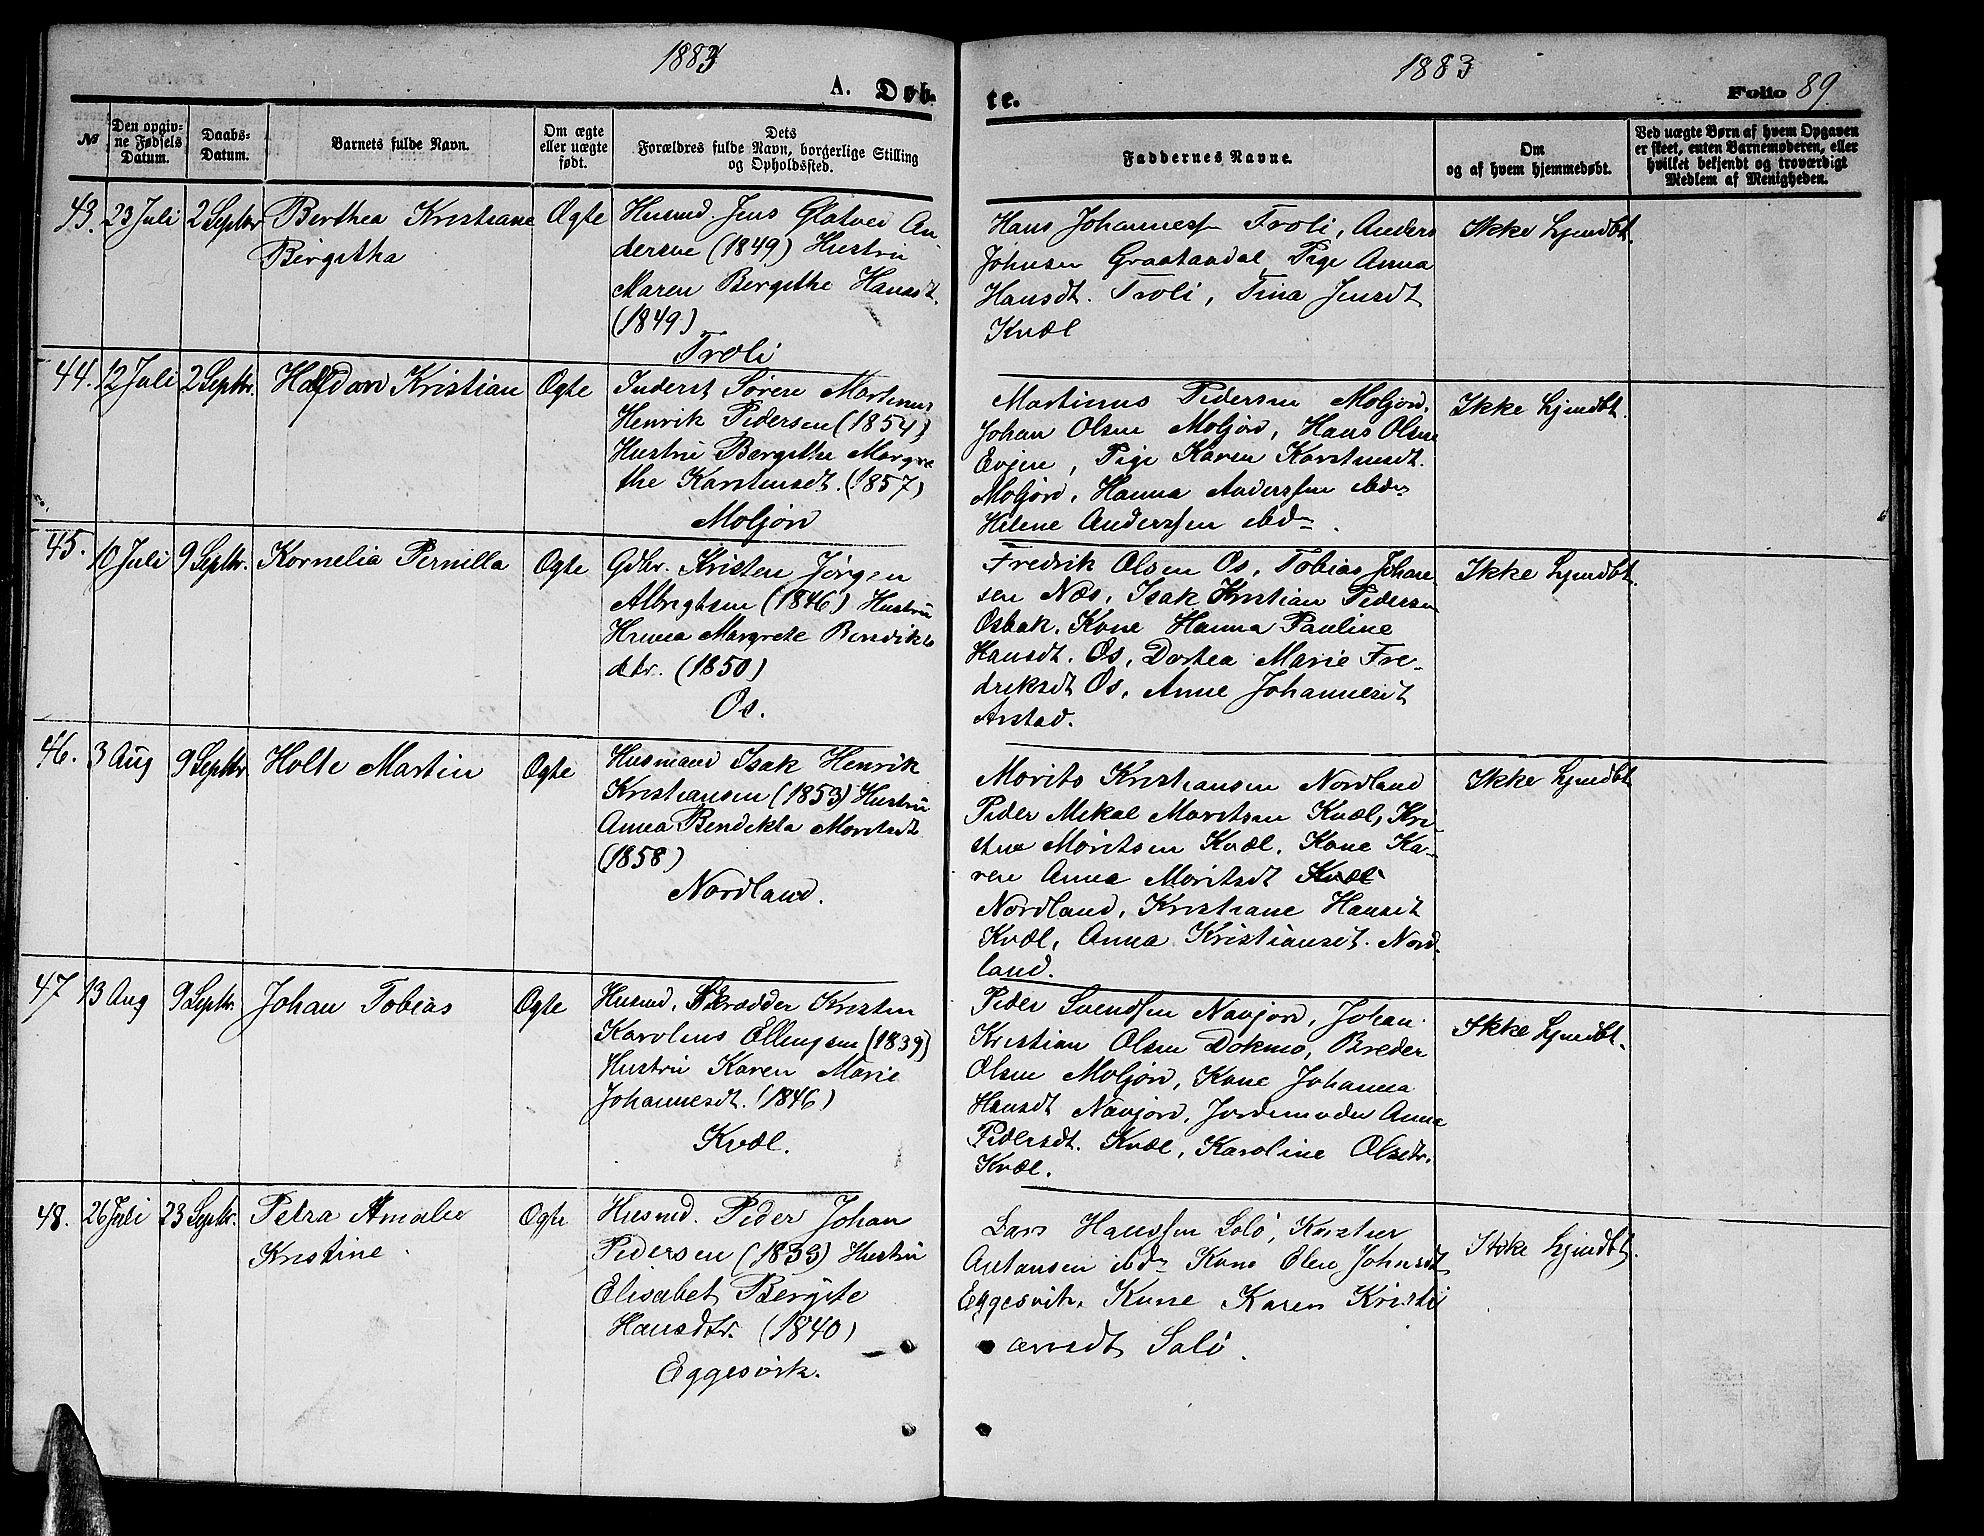 1883
A. Døb-
№
Den opgiv-
ne Fødsels
Datum.
Daabs-
Datum.
Barnets fulde Navn.
Om ægte
eller uægte
født.
Dets
Forældres fulde Navn, borgerlige Stilling
og Opholdssted.
43. 23 Juli 2 Septbr. Berthea Kristiane
Birgitha
Ægte
Husmd. Jens Glatved An-
dersen (1849) Hustru
Maren Bergithe Hansdt.
(1849)
Troli
44. 12 Juli 2 Septbr. Halfdan Kristian Ægte
Inderst Søren Martinus
Henrik Pedersen (1854)
Hustru Bergithe Margre
the Karstensdt. (1857)
Moljord
45. 10 Juli 9 Septbr. Kornelia Pernilla Ægte
Gdbr. Kristen Jørgen
Albrigtsen (1846) Hustru
Hanna Margrete Bendiks
dtr. (1850)
Os.
46. 3 Aug 9 Septbr. Holte Martin Ægte
Husmand Isak Henrik
Kristiansen (1853) Hustru
Anna Bendikta Moritsdt
(1858)
Nordland.
47 13 Aug 9 Septbr. Johan Tobias Ægte
Husmd, Skrædder Kristen
Karolius Ellingsen (1839)
Hustru Karen Marie
Johannesdt. (1846)
Kvæl.
48. 26 Juli 23 Septbr. Petra Amalie
Kristine
Ægte
Husmd. Peder Johan
Pedersen (1833) Hustru
Elisabet Bergite
Hansdtr. (1840)
Eggesvik.
1883
te.
Folio 89.
Faddernes Navne.
Om
og af hvem hjemmedøbt.
Ved uægte Børn af hvem Opgaven
er skeet, enten Barnemoderen, eller
hvilket bekjendt og troværdigt
Medlem af Menigheden.
Hans Johannessen Troli, Anders
Johnsen Graatandal, Pige Anna
Hansdt. Troli, Tina Jensdt
Kvæl
Ikke hjmdbt.
Martinus Pedersen Moljord,
Johan Olsen Moljord, Hans Olsen
Evjen, Pige Karen Karstensdt.
Moljord, Hanna Anderssen ibd
Helene Anderssen ibd.
Ikke hjemdbt.
Fredrik Olsen Os, Tobias Johan-
sen Næs, Isak Kristian Pedersen
Osbak, Kone Hanna Pauline
Hansdt. Os, Dortea Marie Fre-
driksdt Os, Anne Johannesdt
Arstad.
Ikke hjmdbt.
Morits Kristiansen Nordland
Peder Mikal Moritsen Kvæl, Kri-
sten Moritsen Kvæl, Kone Ka-
ren Anna Moritsdt Kvæl
Nordland, Kristiane Hansdt
Kvæl, Anna Kristiansdt. Nord-
land.
Ikke hjmdbt
Peder Svendsen Navjord, Johan
Kristian Olsen Dokmo, Breder
Olsen Moljord, Kone Johanna
Hansdt Navjord, Jordemoder Anna
Pedersdt. Kvæl, Karoline Olsdtr.
Kvæl.
Ikke hjmdbt.
Lars Hanssen Solø, Karsten
Antonsen ibd Kone Elen Johnsdt
Eggesvik, Kone Karen Kristi
ansdt Solø.
Ikke hjmdbt.